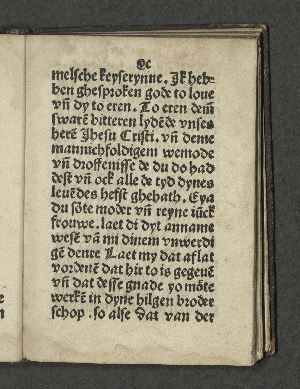 melsche keyserynne. Ik heb-
ben ghesproken gode to loue
vñ dy to eren. To eren dem̃
swarẽ bitteren lydẽ de vnses
herẽ Jhesu Cristi. vñ deme
mannichfoldigem wemode
vñ droffenisse de du do had
dest vñ ock alle de tyd dynes
leuẽdes hefst ghehath. Eya
du sòte moder vñ reyne iũck
frouwe. laet di dyt anname
wesẽ vã mi dinem vnwerdi
gẽ denre Laet my dat aflat
vordenẽ dat hir to is gegeuẽ
vñ dat desse gnade yo mòte
werkẽ in dyne hilgen broder
schop. so alse dat van der
e
n